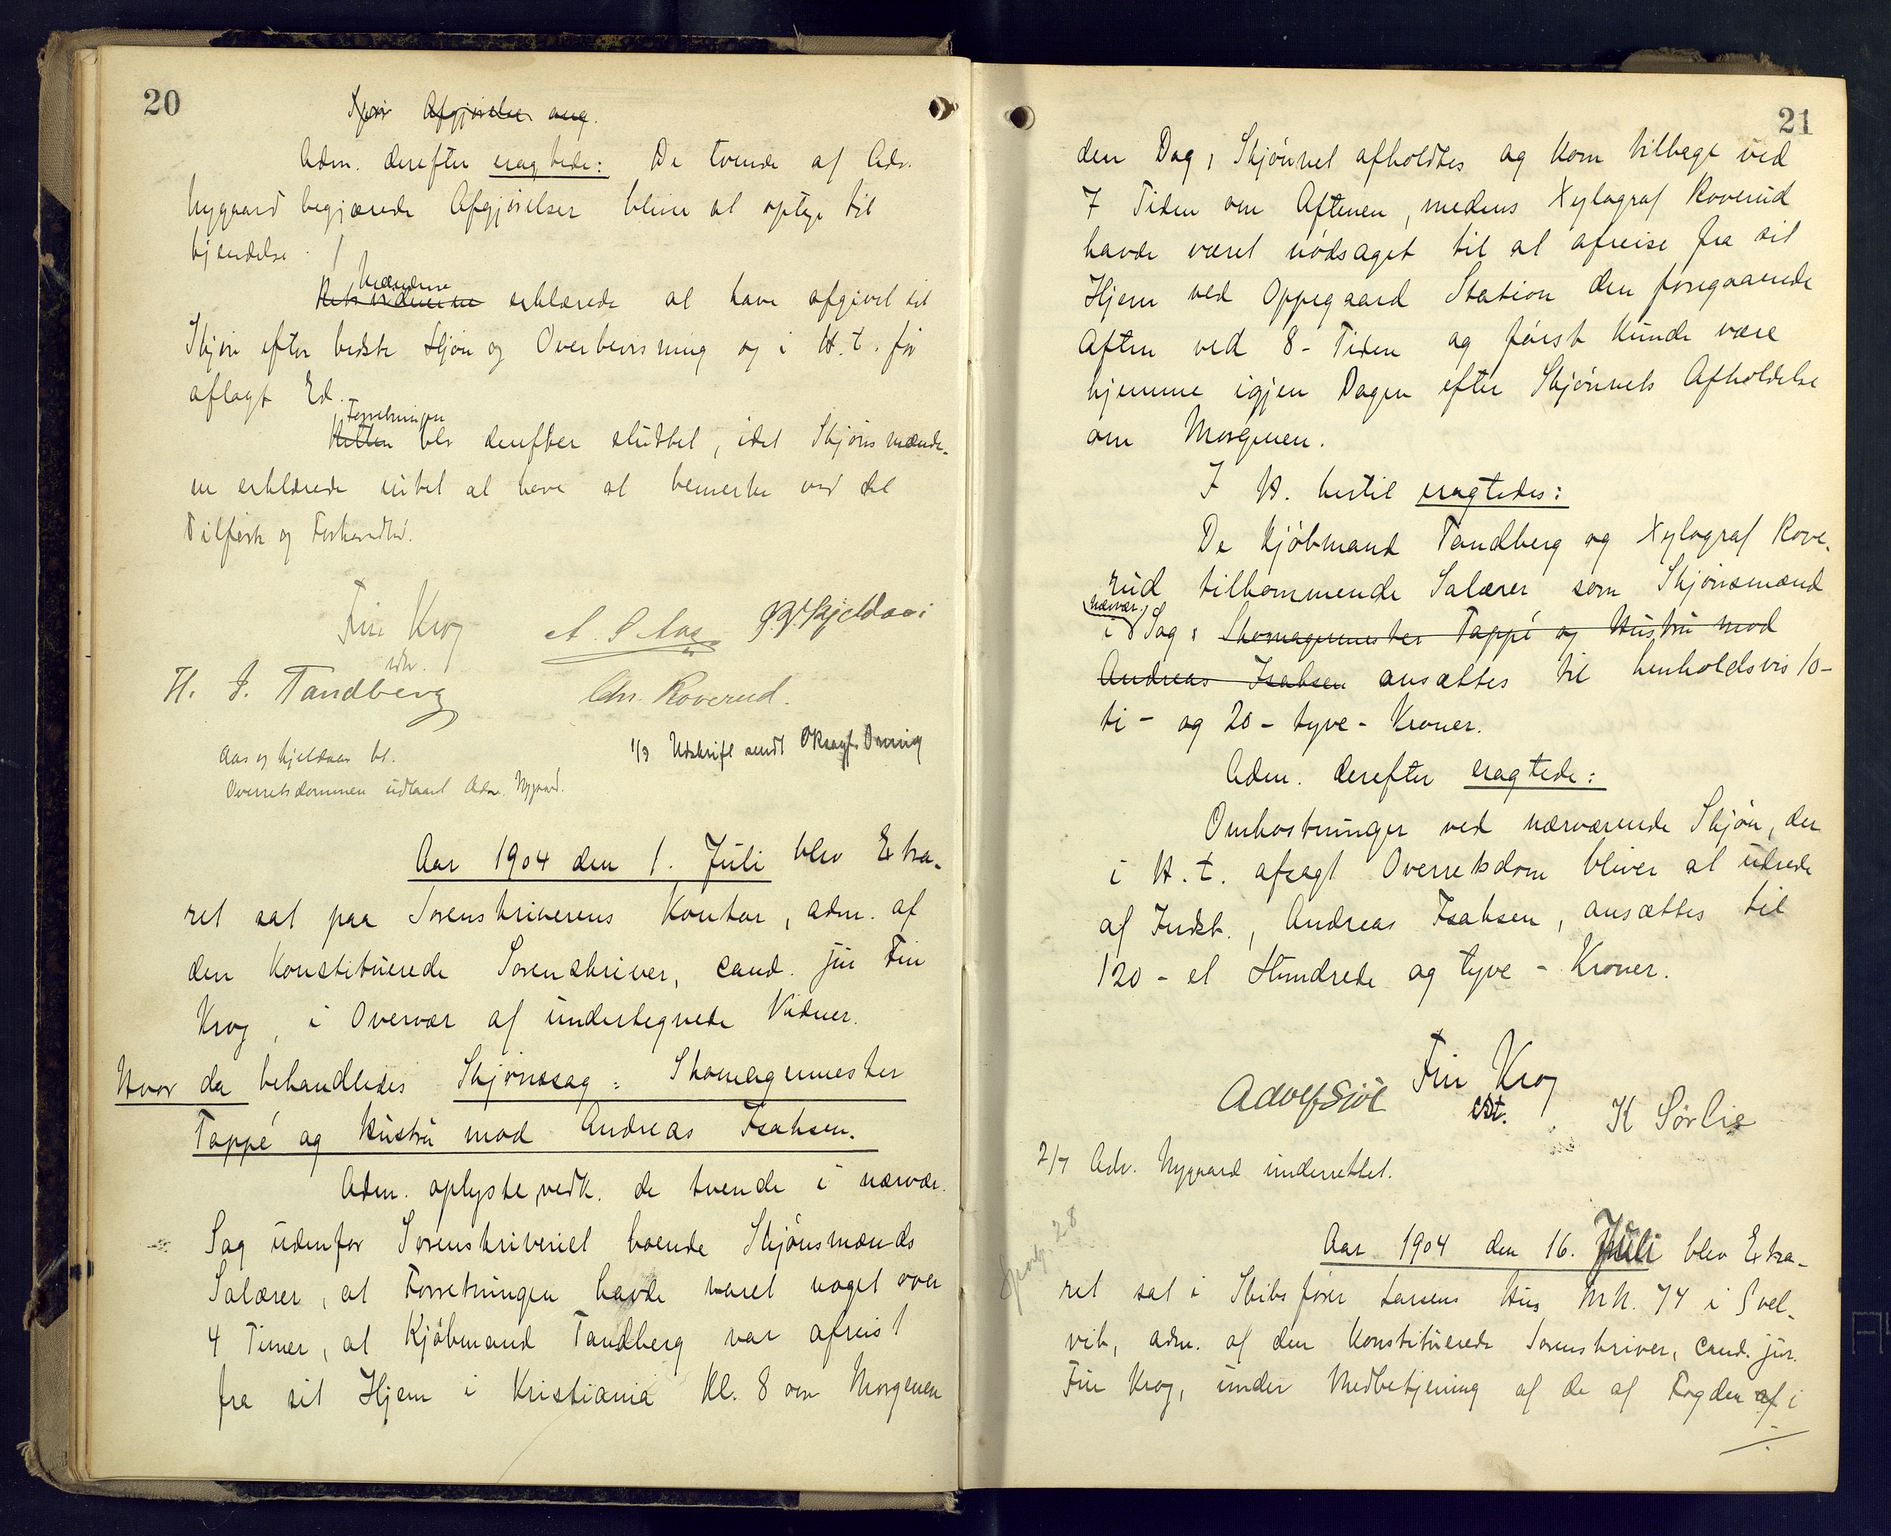 20
Adm. derefter eragtede: De tvende af Adv.
Nygaard begjærede Afgjørelser bliver at optage til
Kjendelse.
Mændene
Retsvidnerne erklærede at have afgivet sit
Skjøn efter bedste Skjøn og Overbevisning og i H. t. før
aflagt Ed.
Forretningen
Retten blev derefter sluttet, idet Skjønsmænde-
ne erklærede intet at have at bemerke ved det
Tilførte og Forhandlede.
Fin Krog
cst.
A. P. Aas
Kjeldaas
H. J. Tandberg
Chr. Roverud.
Aas og Kjeldaas bt.
1/3 Udskrift sendt
Overretsdommen udlaant Adv. Nygaard.
Aar 1904 den 1. Juli blev Extra-
ret sat paa Sorenskriverens Kontor, adm. af
den konstituerede Sorenskriver, cand. jur Fin
Krog, i Overvær af undertegnede Vidner.
Hvor da behandledes Skjønssag: Skomagermester
Tappé og Hustru mod Andreas Isaksen.
Adm. oplyste vedk. de tvende i nærvær.
Sag udenfor Sorenskriveriet boende Skjønsmænds
Salærer, at Forretningen havde varet noget over
4 Timer, at Kjøbmand Tandberg var afreist
fra sit Hjem i Kristiania Kl. 8 om Morgenen
21
den Dag, Skjønnet afholdtes og kom tilbage ved
7 Tiden om Aftenen, medens Xylograf Roverud
havde været nødsaget til at afreise fra sit
Hjem ved Oppegaard Station den foregaaende
Aften ved 8-Tiden og først kunde være
hjemme igjen Dagen efter Skjønnets Afholdelse
om Morgenen.
I H. hertil eragtedes:
De Kjøbmand Tandberg og Xylograf Rove-
rud tilkommende Salærer som Skjønsmænd
nærvær.
i Sag: Skomagermester Tappé og Hustru mod
Andreas Isaksen ansættes til henholdsvis 10-
ti - og 20 - tyve - Kroner.
Adm. derefter eragtede:
Omkostninger ved nærværende Skjøn, der
i H. t. afsagt Overretsdom bliver at udrede
af Indst., Andreas Isaksen, ansættes til
120 - et Hundrede og tyve - Kroner.
Fin Krog
cst.
K Sørlie
2/7 Adv. Nygaard underrettet.
28
Aar 1904 den 16. Juli blev Extra-
ret sat i Skibsfører Larsens Hus Mk. 74 i Svel-
vik, adm. af den konstituerede Sorenskriver, cand. jur.
Fin Krog, under Medbetjening af de af Fogden af i